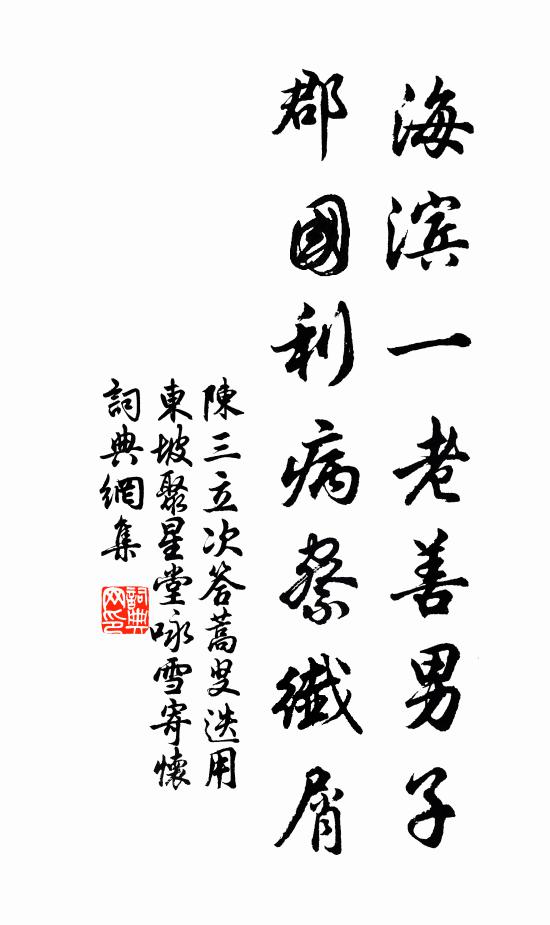 海滨一老善男子
郡國利病察纖屑
陳三立次答蒿叟迭用
東坡聚星堂咏雪寄懷
詞典網集
詞典
网印